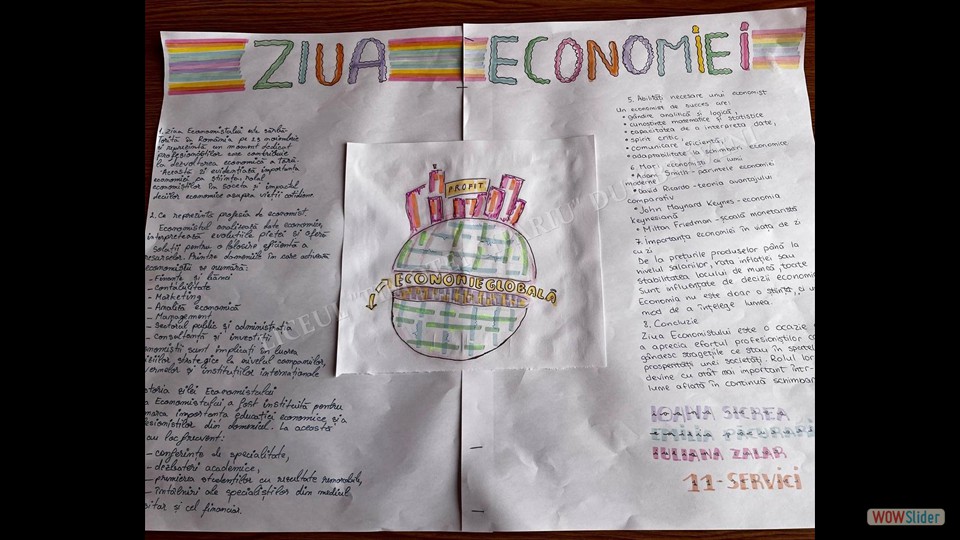 ZIUA ECONOMIEI
1. Ziua Economistului este sărbă-
torită în România pe 25 noiembrie
și reprezintă un moment dedicat
profesioniștilor care contribuie
la dezvoltarea economică a țării.
Această zi evidențiază importanța
economiei ca știință, rolul
economiștilor în societa și impactul
deciilor economice asupra vieții cotidiene.
2. Ce reprezintă profesia de economist.
Economistul analizează date economice,
interpretează evoluțiile pieței și oferă
soluții pentru o folosire eficientă a
resurselor. Printre domeniile în care activează
economiștii se numără:
- Finanțe și bănci
- Contabilitate
- Marketing
- Analiză economică
- Management
- Sectorul public și administrația
- Consultanță și investiții
sunt implicați în luarea
strategice la nivelul companiilor,
și instituțiilor internaționale
Economistului
Economistului a fost instituită pentru
importanța educației economice și a
din domeniul. La această
au loc frecvent:
- conferințe de specialitate,
- dezbateri academice,
- premierea studenților cu rezultate remarcabile,
- întâlniri ale specialiștilor din mediul
și cel financiar.
PROFIT
ECONOMIE GLOBALĂ
5. Abilități necesare unui economist
Un economist de succes are:
• gândire analitică și logică,
• cunoștințe matematice și statistice
• capacitatea de a interpreta date,
• spirit critic,
• comunicare eficientă,
• adaptabilitate la schimbări economice
6. Mari economiști ai lumii
• Adam Smith - părintele economiei
moderne
• David Ricardo - teoria avantajului
comparativ
• John Maynard Keynes - economia
keynesiană
• Milton Friedman - școala monetaristă
7. Importanța economiei în viața de zi
cu zi
De la prețurile produselor până la
nivelul salariilor, rata inflației sau
stabilitatea locului de muncă, toate
sunt influențate de decizii economice
Economia nu este doar o știință, ci un
mod de a înțelege lumea.
8. Concluzie
Ziua Economistului este o ocazie
a aprecia efortul profesioniștilor
gândesc stragețiile ce stau în spatele
prosperității unei societăți. Rolul lor
devine cu atât mai important într-
lume aflată în continuă schimbare
IOANA SICREA
EMILIA
IULIANA ZALAR
11 - SERVICI
WOWSlider